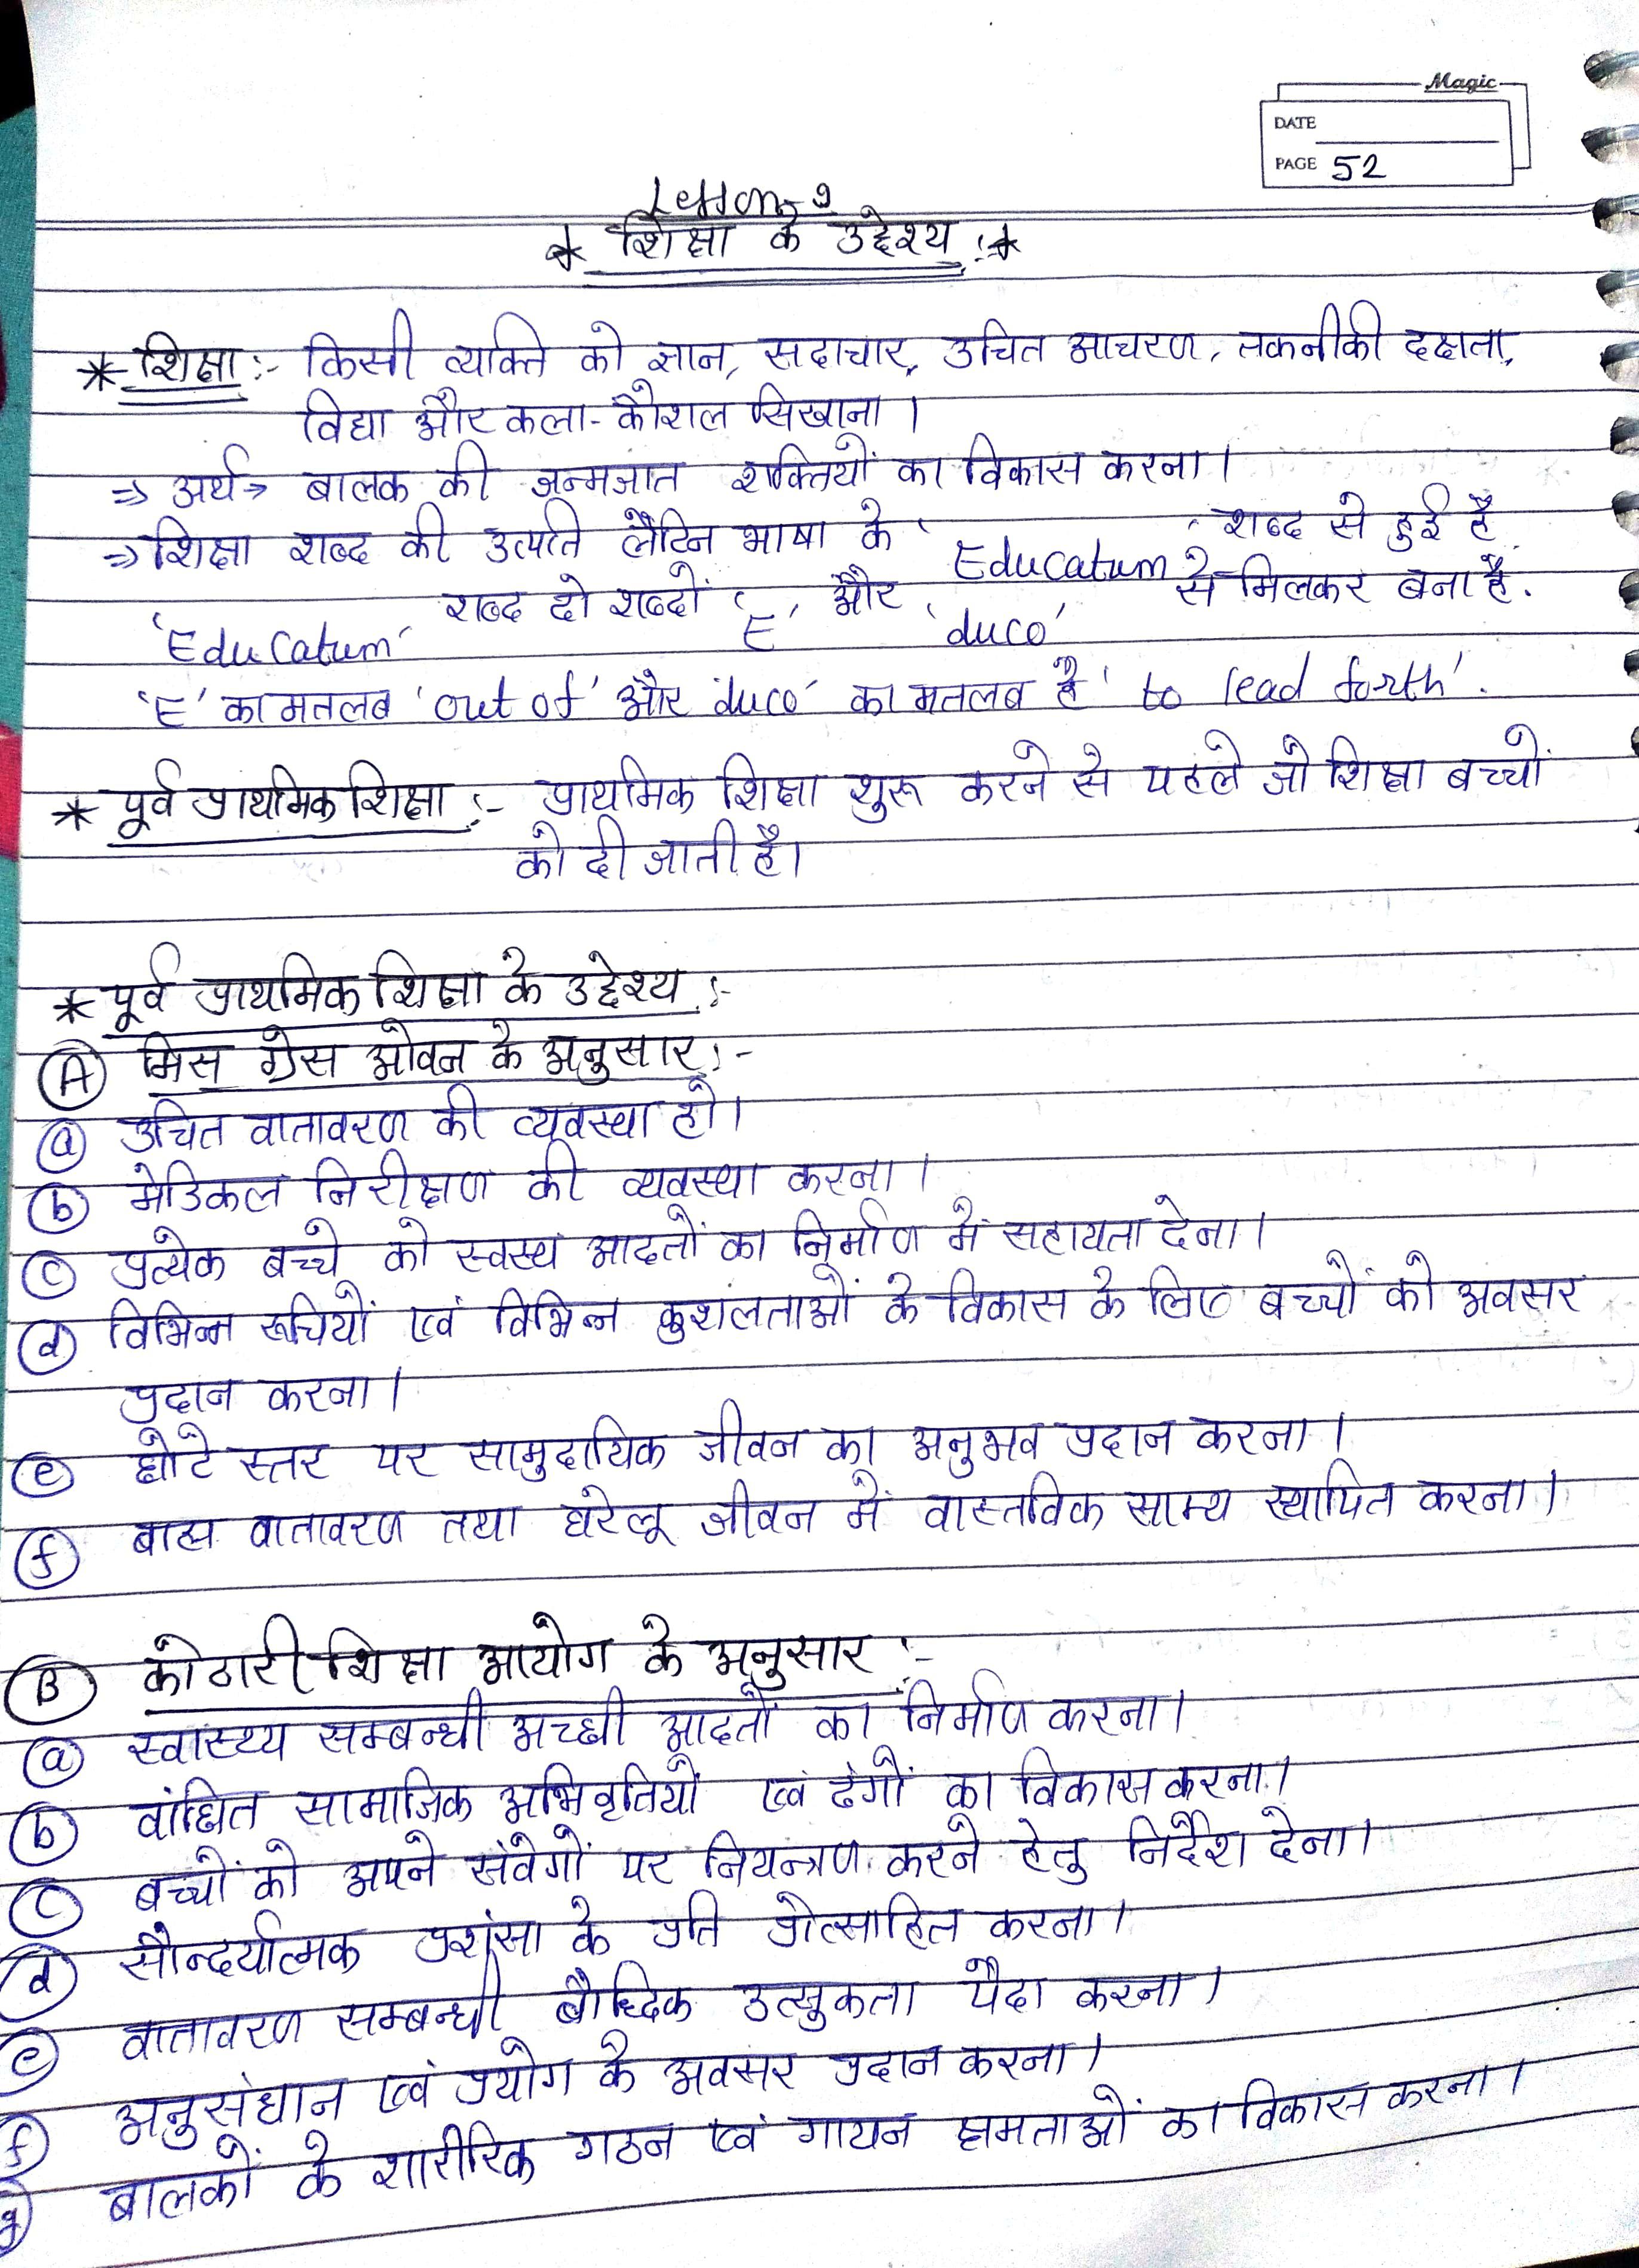 Magic
DATE
PAGE 52
Lesson-9
* शिक्षा के उद्देश्य :*
* शिक्षा :- किसी व्यक्ति को ज्ञान, सदाचार, उचित आचरण, तकनीकी दक्षता,
विद्या और कला-कौशल सिखाना।
⇒ अर्थ → बालक की जन्मजात शक्तियों का विकास करना।
⇒ शिक्षा शब्द की उत्पत्ति लैटिन भाषा के 'Educatum' शब्द से हुई है.
'Educatum' शब्द दो शब्दों 'E' और 'duco' से मिलकर बना है.
'E' का मतलब 'out of' और 'duco' का मतलब है 'to lead forth'.
* पूर्व प्राथमिक शिक्षा :- प्राथमिक शिक्षा शुरू करने से पहले जो शिक्षा बच्चों
को दी जाती है।
* पूर्व प्राथमिक शिक्षा के उद्देश्य :-
(A) मिस ग्रेस ओवन के अनुसार :-
(a) उचित वातावरण की व्यवस्था हो।
(b) मेडिकल निरीक्षण की व्यवस्था करना।
(c) प्रत्येक बच्चे को स्वस्थ आदतों का निर्माण में सहायता देना।
(d) विभिन्न रूचियों एवं विभिन्न कुशलताओं के विकास के लिए बच्चों को अवसर
प्रदान करना।
(e) छोटे स्तर पर सामुदायिक जीवन का अनुभव प्रदान करना।
(f) बाह्य वातावरण तथा घरेलू जीवन में वास्तविक साम्य स्थापित करना।
(B) कोठारी शिक्षा आयोग के अनुसार :-
(a) स्वास्थ्य सम्बन्धी अच्छी आदतों का निर्माण करना।
(b) वांछित सामाजिक अभिवृतियों एवं ढंगों का विकास करना।
(c) बच्चों को अपने संवेगों पर नियन्त्रण करने हेतु निर्देश देना।
(d) सौन्दर्यात्मक प्रशंसा के प्रति प्रोत्साहित करना।
(e) वातावरण सम्बन्धी बौद्धिक उत्सुकता पैदा करना।
(f) अनुसंधान एवं प्रयोग के अवसर प्रदान करना।
(g) बालकों के शारीरिक गठन एवं गायन क्षमताओं का विकास करना।